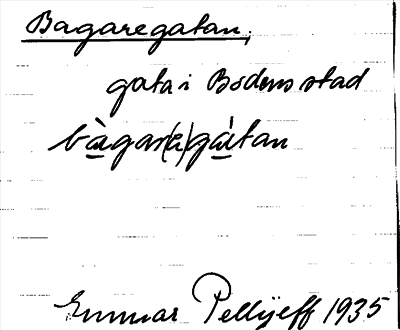 Bagaregatan,
gata i Bodens stad
bàgar(e)gàtan
Gunnar Pellijeff 1935